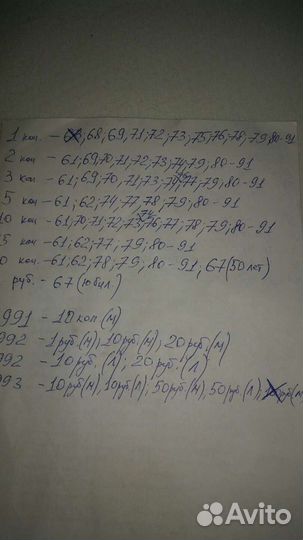 1 коп. – 68, 69, 71; 72; 73; 75; 76; 78; 79; 80-91
2 коп – 61; 69; 70; 71; 72; 73; 74; 79; 80-91
3 коп – 61; 69; 70; 71; 73; 77; 79; 80-91
5 коп – 61; 62; 74; 77; 78; 79; 80-91
10 коп – 61; 70; 71; 72; 73; 76; 77; 78; 79; 80-91
5 коп – 61; 62; 77, 79; 80-91
0 коп – 61; 62; 78; 79; 80-91; 67 (50 лет)
руб. – 67 (юбил.)
991 – 10 коп (м)
992 – 1 руб. (м); 10 руб. (м); 20 руб. (м)
992 – 10 руб. (л); 20 руб. (л)
993 – 10 руб. (м), 10 руб. (л); 50 руб. (м), 50 руб. (л); руб (м
Avito